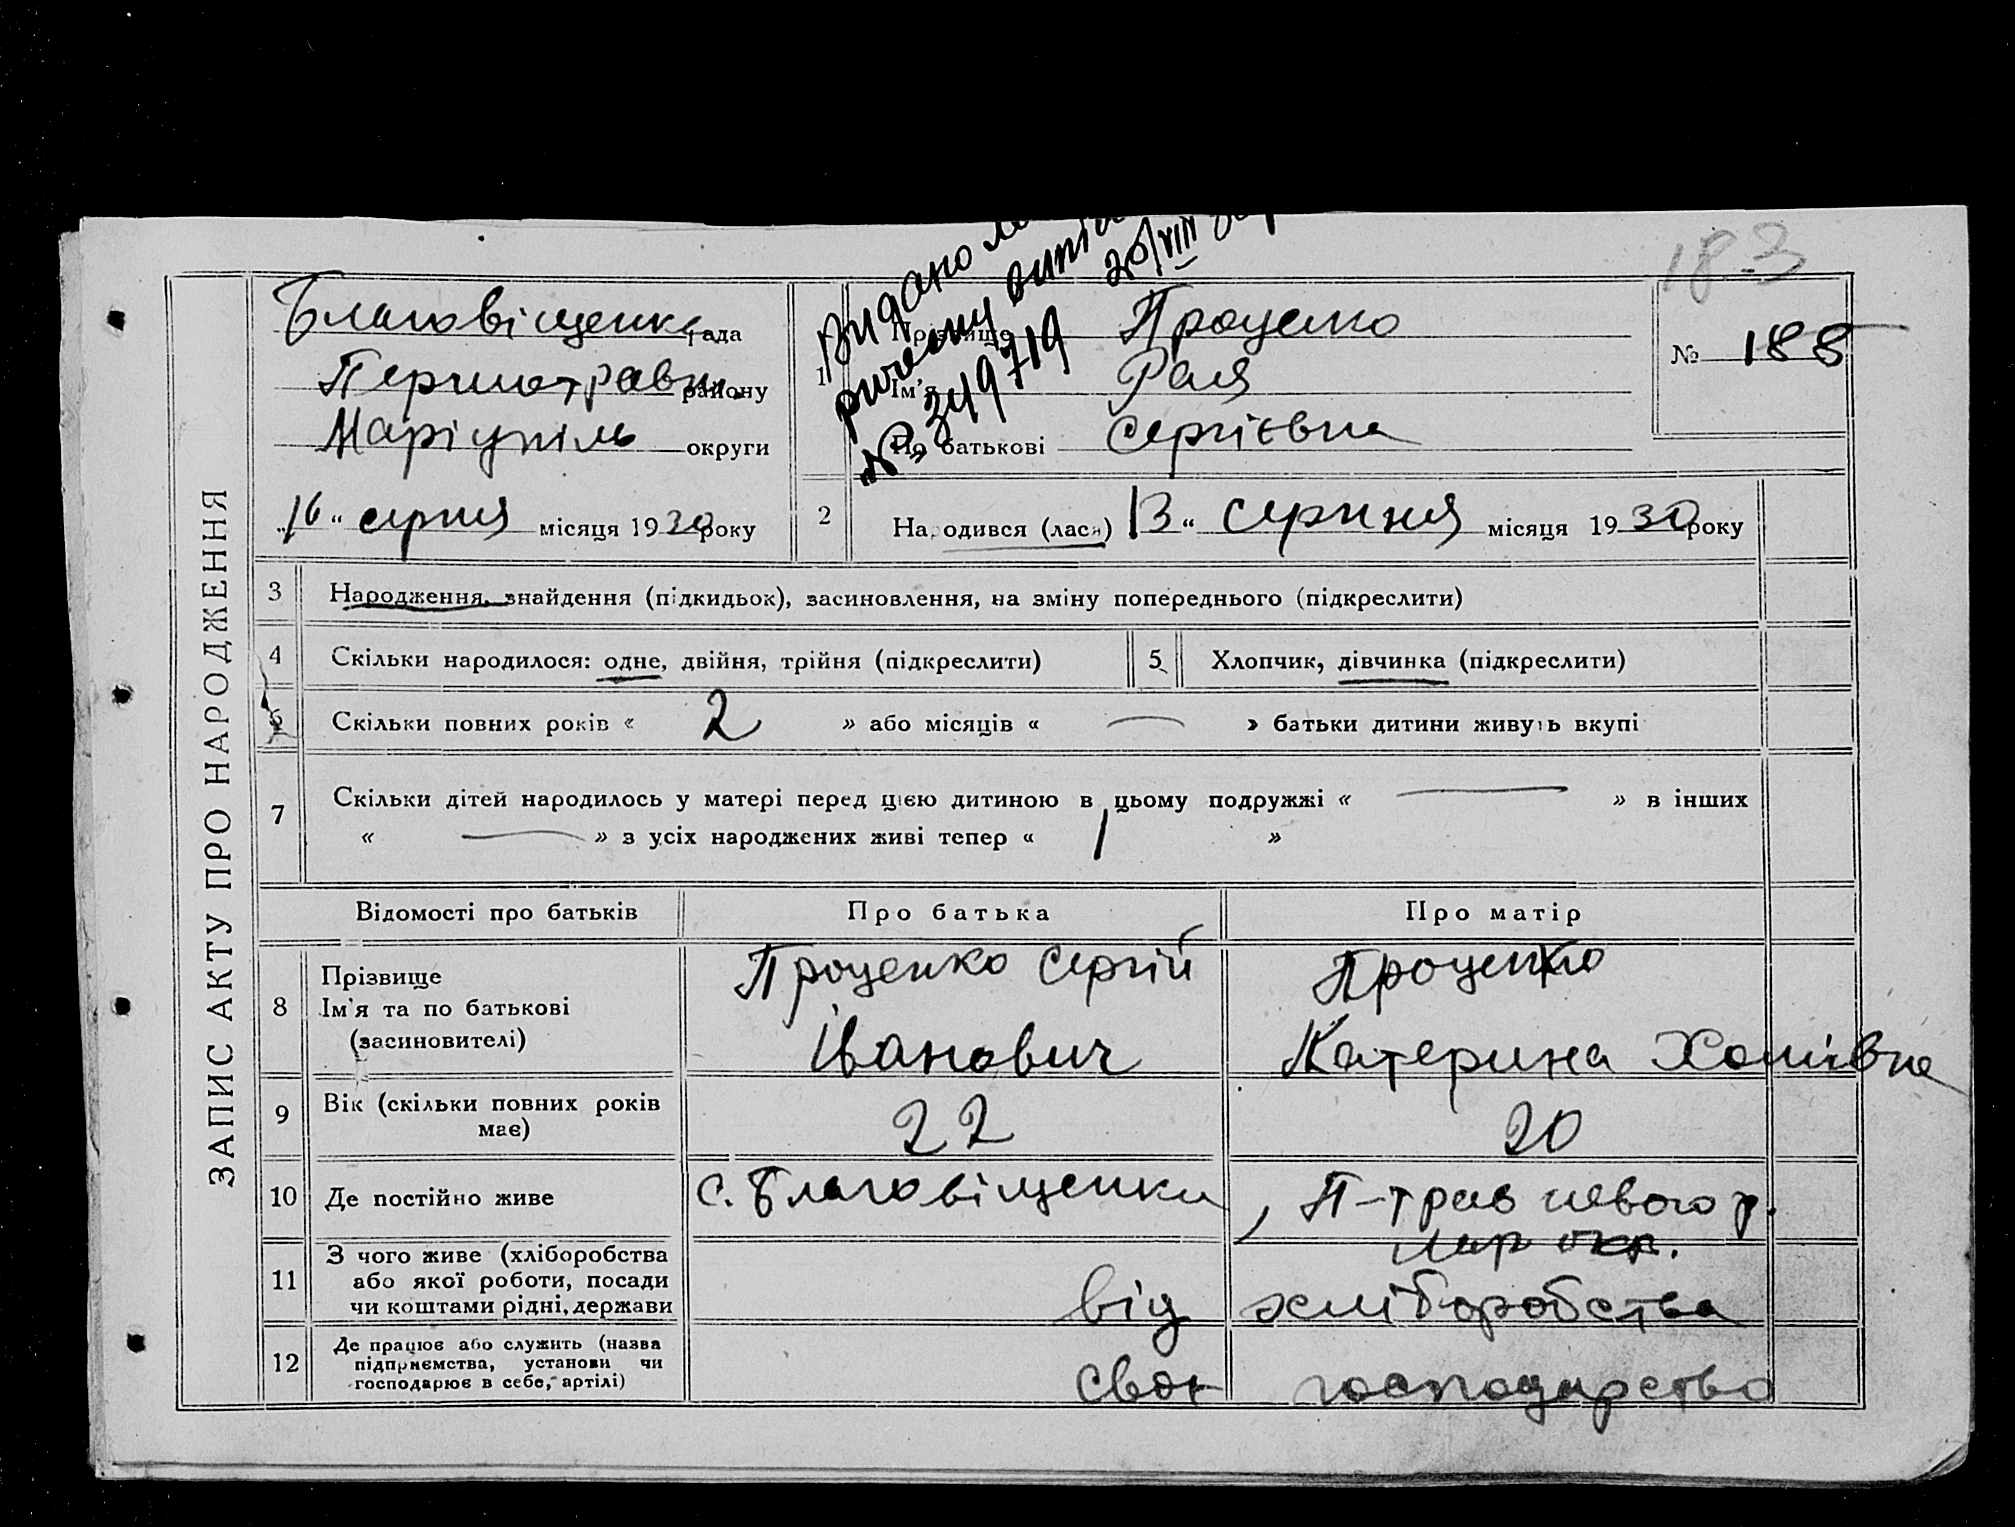 183
Видано
виписку
20/VIII
№ 349719
ЗАПИС АКТУ ПРО НАРОДЖЕННЯ
Благовіщенка рада
Першотравн. району
Маріупіль округи
„16“ серпня місяця 1930 року
1 Прізвище Проценко
Ім'я Рая
По батькові Сергієвна
№ 188
2 Народився (лася) 13“ серпня місяця 1930 року
3 Народження, знайдення (підкидьок), засиновлення, на зміну попереднього (підкреслити)
4 Скільки народилося: одне, двійня, трійня (підкреслити) 5 Хлопчик, дівчинка (підкреслити)
6 Скільки повних років « 2 » або місяців « — » батьки дитини живуть вкупі
7 Скільки дітей народилось у матері перед цією дитиною в цьому подружжі « — » в інших
« — » з усіх народжених живі тепер « 1 »
Відомості про батьків Про батька Про матір
8 Прізвище Ім'я та по батькові (засиновителі)
Проценко Сергій
Іванович
Проценко
Катерина Хомівна
9 Вік (скільки повних років має) 22 20
10 Де постійно живе с. Благовіщенки, П-травневого р.
Мар окр.
11 З чого живе (хліборобства
або якої роботи, посади
чи коштами рідні, держави
від хліборобства
12 Де працює або служить (назва
підприємства, установи чи
господарює в себе, артілі)
своє господарство